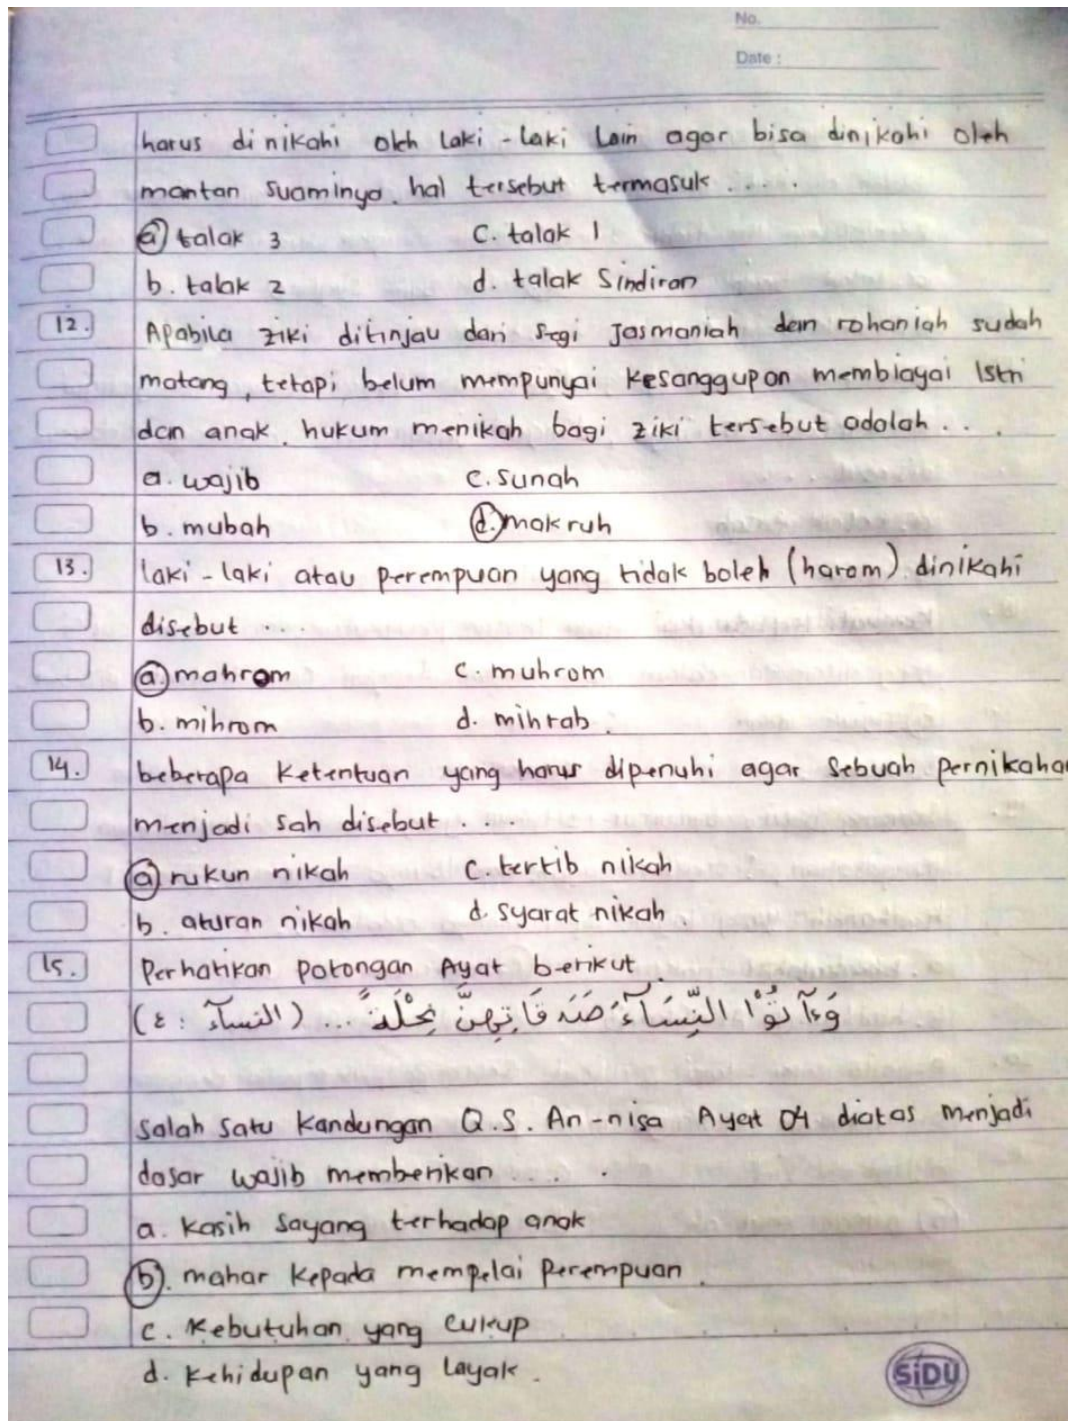 No.
Date :
harus dinikahi oleh laki-laki lain agar bisa dinikahi oleh
mantan suaminya. hal tersebut termasuk ....
a. talak 3 c. talak 1
b. talak 2 d. talak sindiran
12. Apabila ziki ditinjau dari segi jasmaniah dan rohaniah sudah
matang, tetapi belum mempunyai kesanggupan membiayai istri
dan anak. hukum menikah bagi ziki tersebut adalah ...
a. wajib c. sunah
b. mubah d. makruh
13. laki-laki atau perempuan yang tidak boleh (harom) dinikahi
disebut ...
a. mahrom c. muhrom
b. mihrom d. mihrab.
14. beberapa ketentuan yang harus dipenuhi agar sebuah pernikaha
menjadi sah disebut ...
a. rukun nikah c. tertib nikah
b. aturan nikah d. syarat nikah.
15. Perhatikan potongan Ayat berikut
وَءَاتُوا۟ النِّسَآءَ صَدُقَاتِهِنَّ نِحْلَةً ... (النسآء : ٤)
Salah satu kandungan Q.S. An-nisa Ayat 04 diatas menjadi
dasar wajib memberikan ....
a. kasih sayang terhadap anak
b. mahar kepada mempelai perempuan.
c. kebutuhan yang cukup
d. kehidupan yang layak.
SiDU